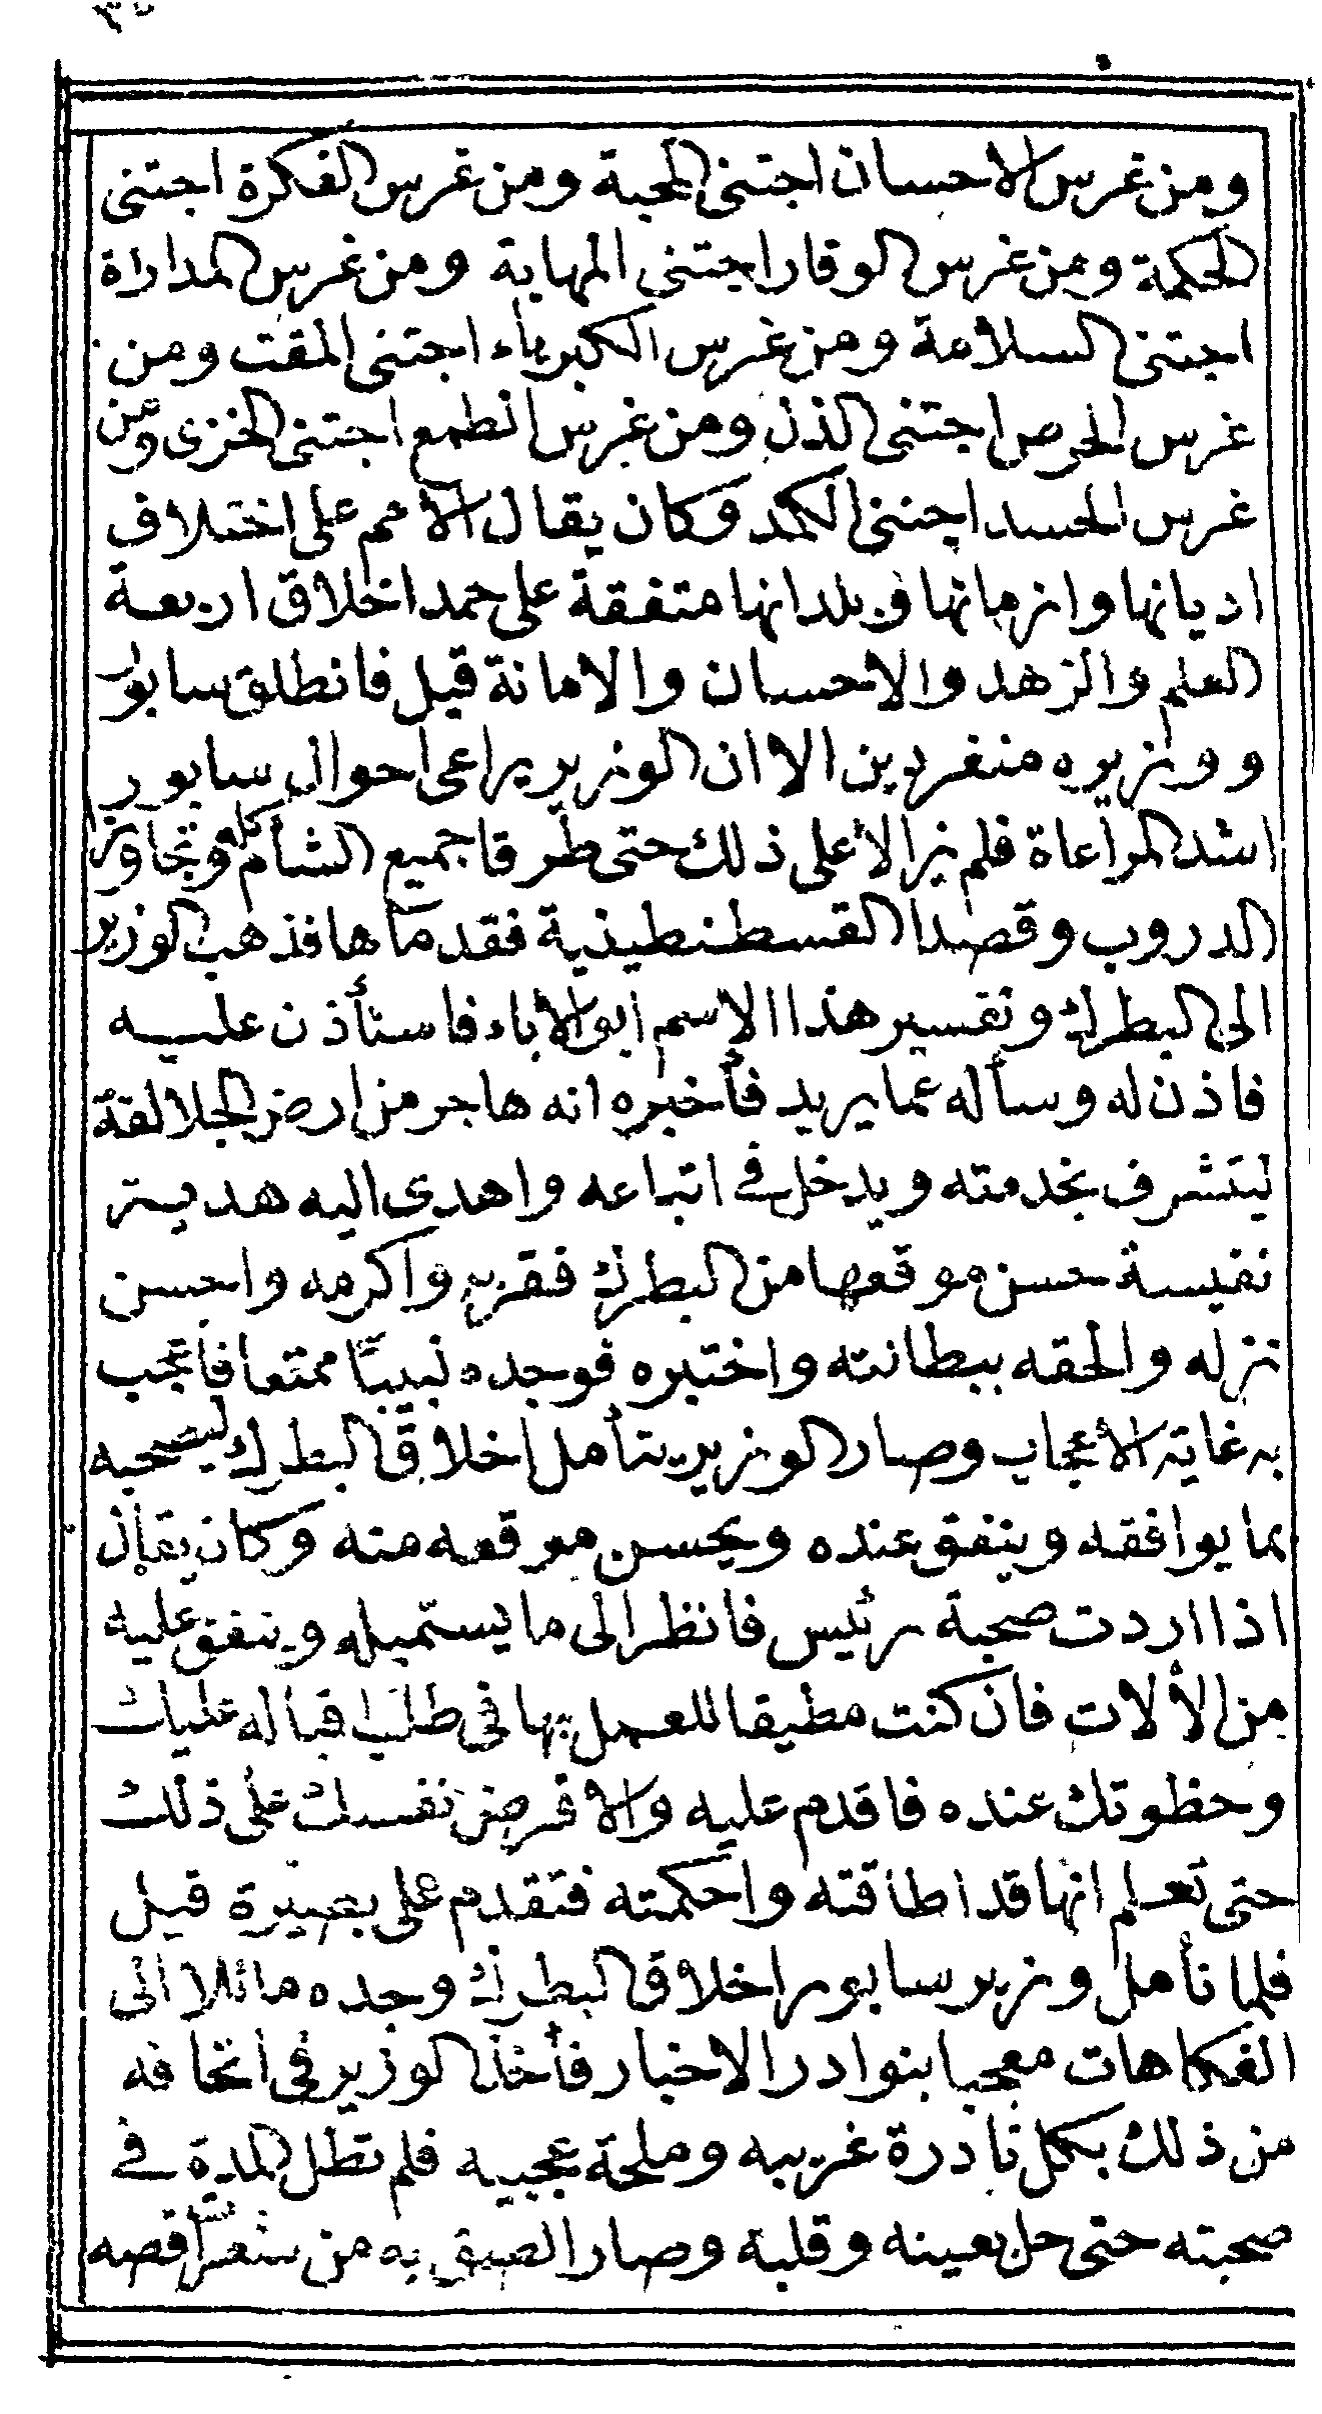 ومن غرس الاحسان اجتنى المحبة ومن غرس الفكرة اجتنى
الحكمة ومن غرس الوقار اجتنى المهابة ومن غرس المداراة
اجتنى السلامة ومن غرس الكبرياء اجتنى المقت ومن
غرس الحرص اجتنى الذل ومن غرس الطمع اجتنى الخزى ومن
غرس الحسد اجتنى الكمد وكان يقال الأمم على اختلاف
اديانها وازمانها وبلدانها متفقة على حمد اخلاق اربعة
العلم والزهد والاحسان والامانة قيل فانطلق سابور
ووزيره منفردين الا ان الوزير يراعى احوال سابور
اشد المراعاة فلم يزالا على ذلك حتى طرقا جميع الشأم كله وتجاوزا
الدروب وقصدا القسطنطينية فقدماها فذهب الوزير
الى البطرك وتفسير هذا الاسم ابو الاباء فاستأذن عليه
فاذن له وسأله عما يريد فأخبره انه هاجر من ارض الجلالقة
ليتشرف بخدمته ويدخل في اتباعه واهدى اليه هدية
نفيسة حسن موقعها من البطرك فقربه واكرمه واحسن
نزله والحقه ببطانته واختبره فوجده لبيبًا ممتعا فاعجب
به غاية الأعجاب وصار الوزير يتأمل اخلاق البطرك ليصحبه
بما يوافقه وينفق عنده ويحسن موقعه منه وكان يقال
اذا اردت صحبة رئيس فانظر الى ما يستميله وينفق عليه
من الألات فان كنت مطيقا للعمل بها في طلب اقباله عليك
وحظوتك عنده فاقدم عليه والا فرض نفسك على ذلك
حتى تعلم انها قد اطاقته واحكمته فتقدم على بصيرة قيل
فلما تأمل وزير سابور اخلاق البطرك وجده مائلا الى
الفكاهات معجبا بنوادر الاخبار فأخذ الوزير في اتحافه
من ذلك بكل نادرة غريبه وملحة عجيبه فلم تطل المدة في
صحبته حتى حل بعينه وقلبه وصار الصق به من شعرات قصه